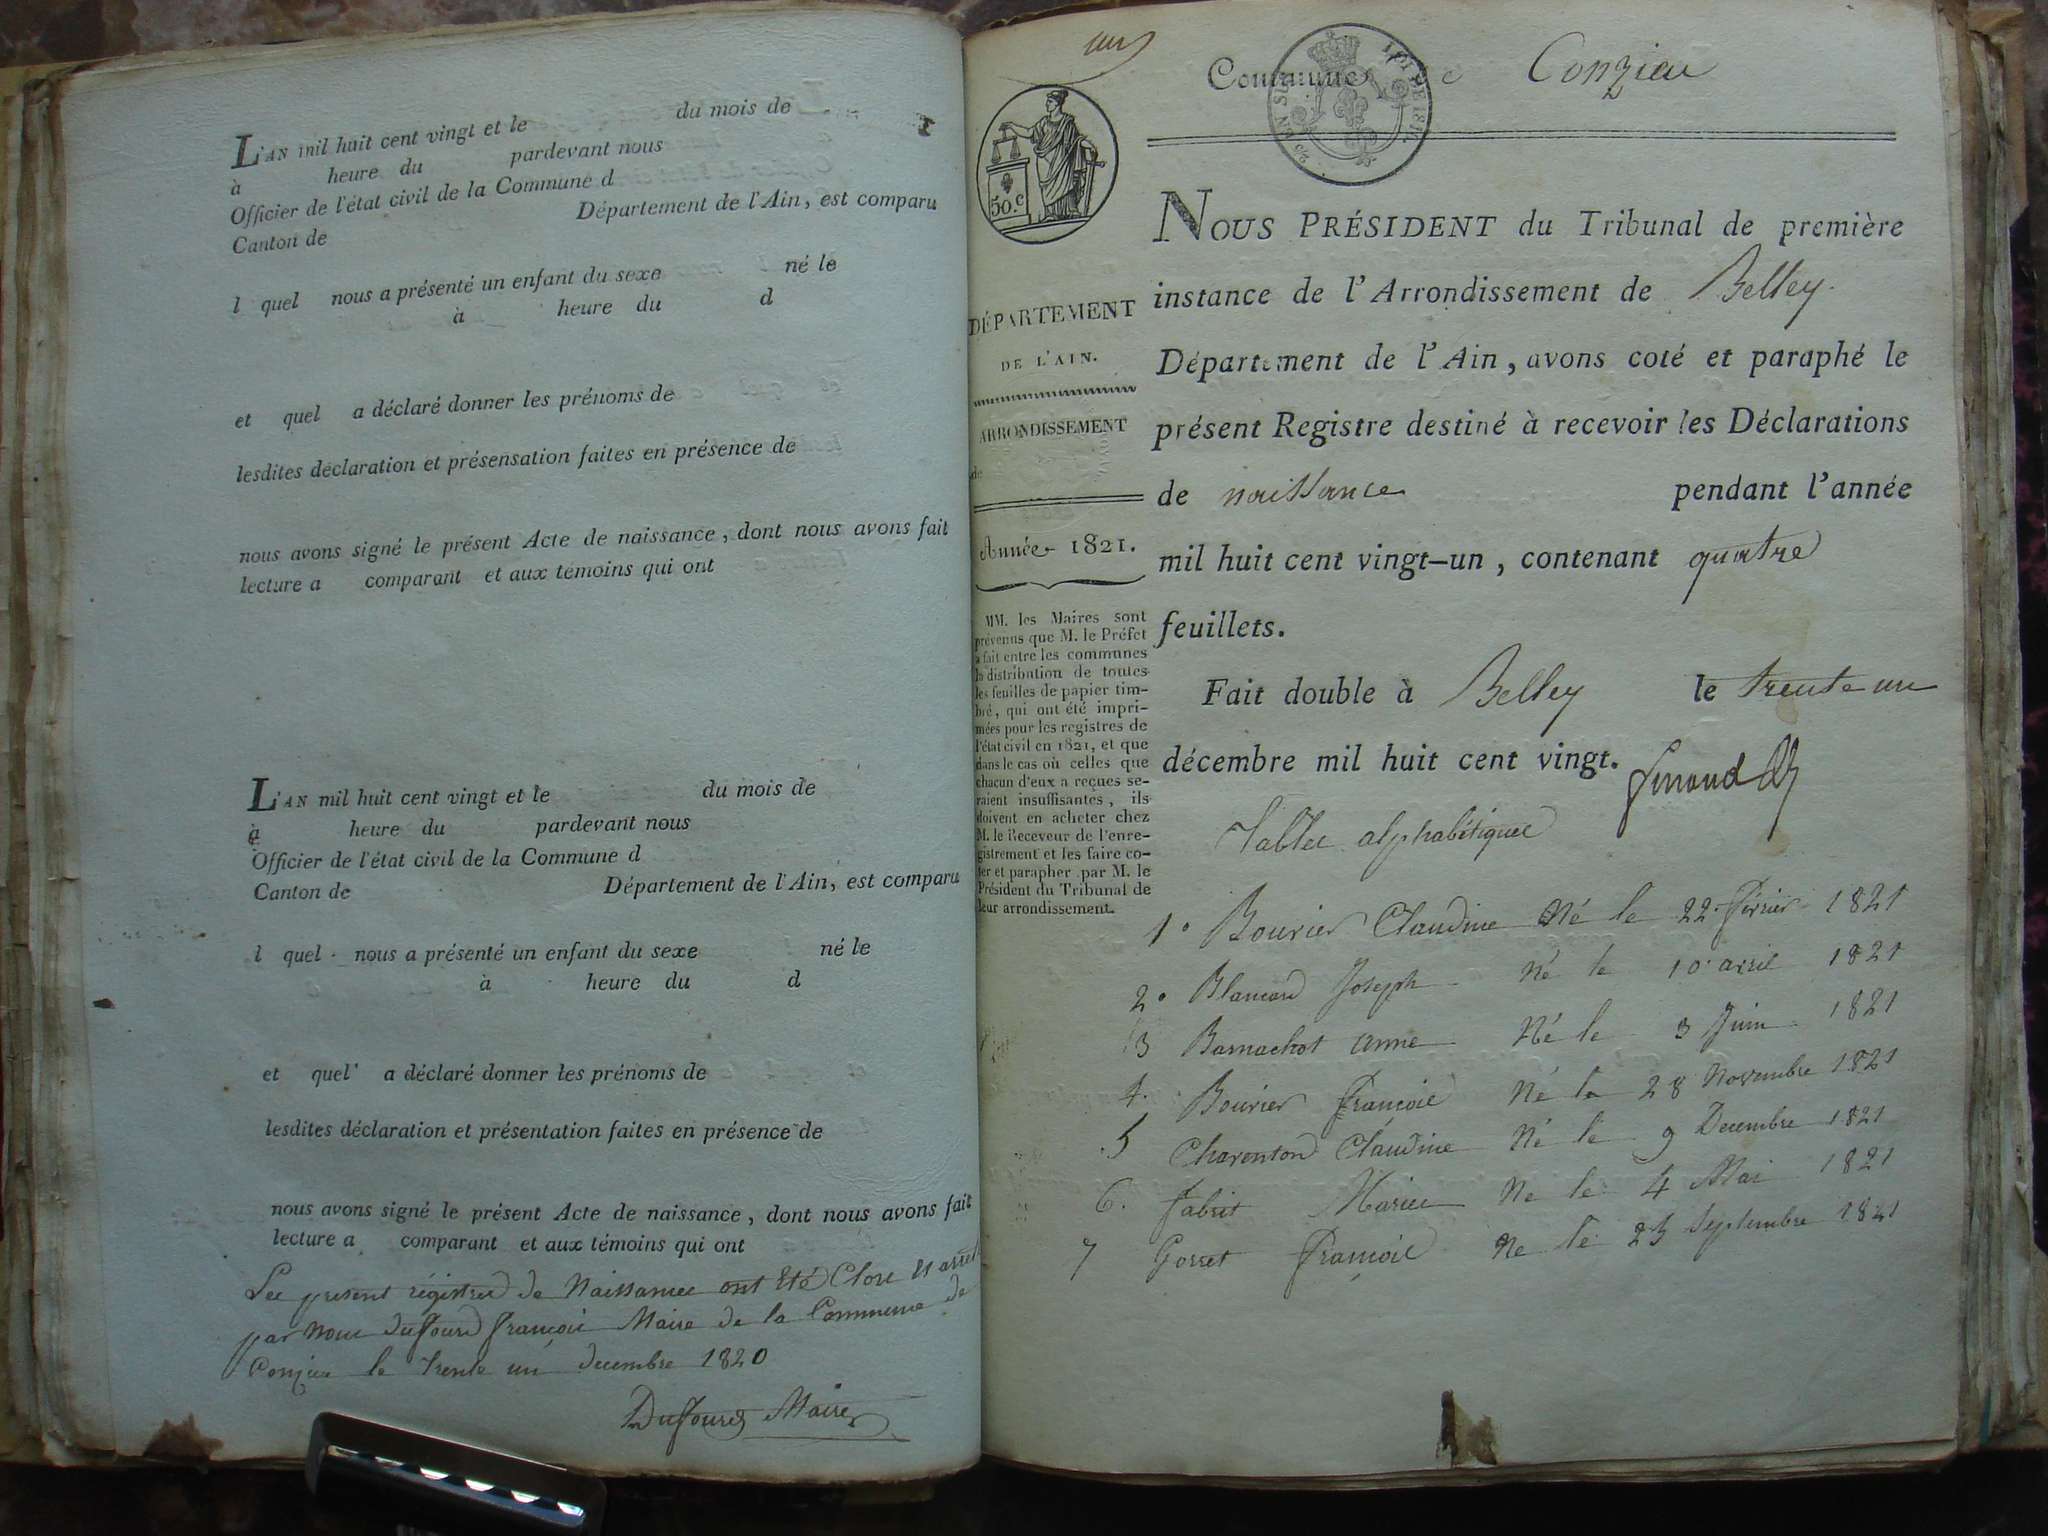 L'AN mil huit cent vingt et le du mois de
à heure du pardevant nous
Officier de l'état civil de la Commune d
Canton de Département de l'Ain, est comparu
l quel nous a présenté un enfant du sexe né le
à heure du d
et quel a déclaré donner les prénoms de
lesdites déclaration et présensation faites en présence de
nous avons signé le présent Acte de naissance, dont nous avons fait
lecture a comparant et aux témoins qui ont
L'AN mil huit cent vingt et le du mois de
à heure du pardevant nous
Officier de l'état civil de la Commune d
Canton de Département de l'Ain, est comparu
l quel nous a présenté un enfant du sexe né le
à heure du d
et quel a déclaré donner les prénoms de
lesdites déclaration et présentation faites en présence de
nous avons signé le présent Acte de naissance, dont nous avons fait
lecture a comparant et aux témoins qui ont
Les present régistres de Naissances ont été Clore et
par nous duffourd françois Maire de la Commune de
Conjieu le trente un decembre 1820
Duffourd Maire
un
Commune Conzieu
50.c
DÉPARTEMENT
DE L'AIN.
ARRONDISSEMENT
de
Année 1821.
MM. les Maires sont
prévenus que M. le Préfet
a fait entre les communes
la distribution de toutes
les feuilles de papier tim-
bré, qui ont été impri-
mées pour les registres de
l'état civil en 1821, et que
dans le cas où celles que
chacun d'eux a reçues se-
raient insuffisantes, ils
doivent en acheter chez
M. le Receveur de l'enre-
gistrement et les faire co-
ter et parapher par M. le
Président du Tribunal de
leur arrondissement.
NOUS PRÉSIDENT du Tribunal de première
instance de l'Arrondissement de Belley.
Département de l'Ain, avons coté et paraphé le
présent Registre destiné à recevoir les Déclarations
de naissance pendant l'année
mil huit cent vingt-un, contenant quatre
feuillets.
Fait double à Belley le trente un
décembre mil huit cent vingt.
Tables alphabétiques
1° Bouvier Claudine Né le 22 février 1821
2° Blancard Joseph Né le 10 avril 1821
3 Barnachot anne Né le 3 Juin 1821
4. Bouvier françois Né le 28 Novembre 1821
5 Charenton Claudine Né le 9 Decembre 1821
6. fabret Maries Ne le 4 Mai 1821
7 Gorret françois Ne le 23 Septembre 1821